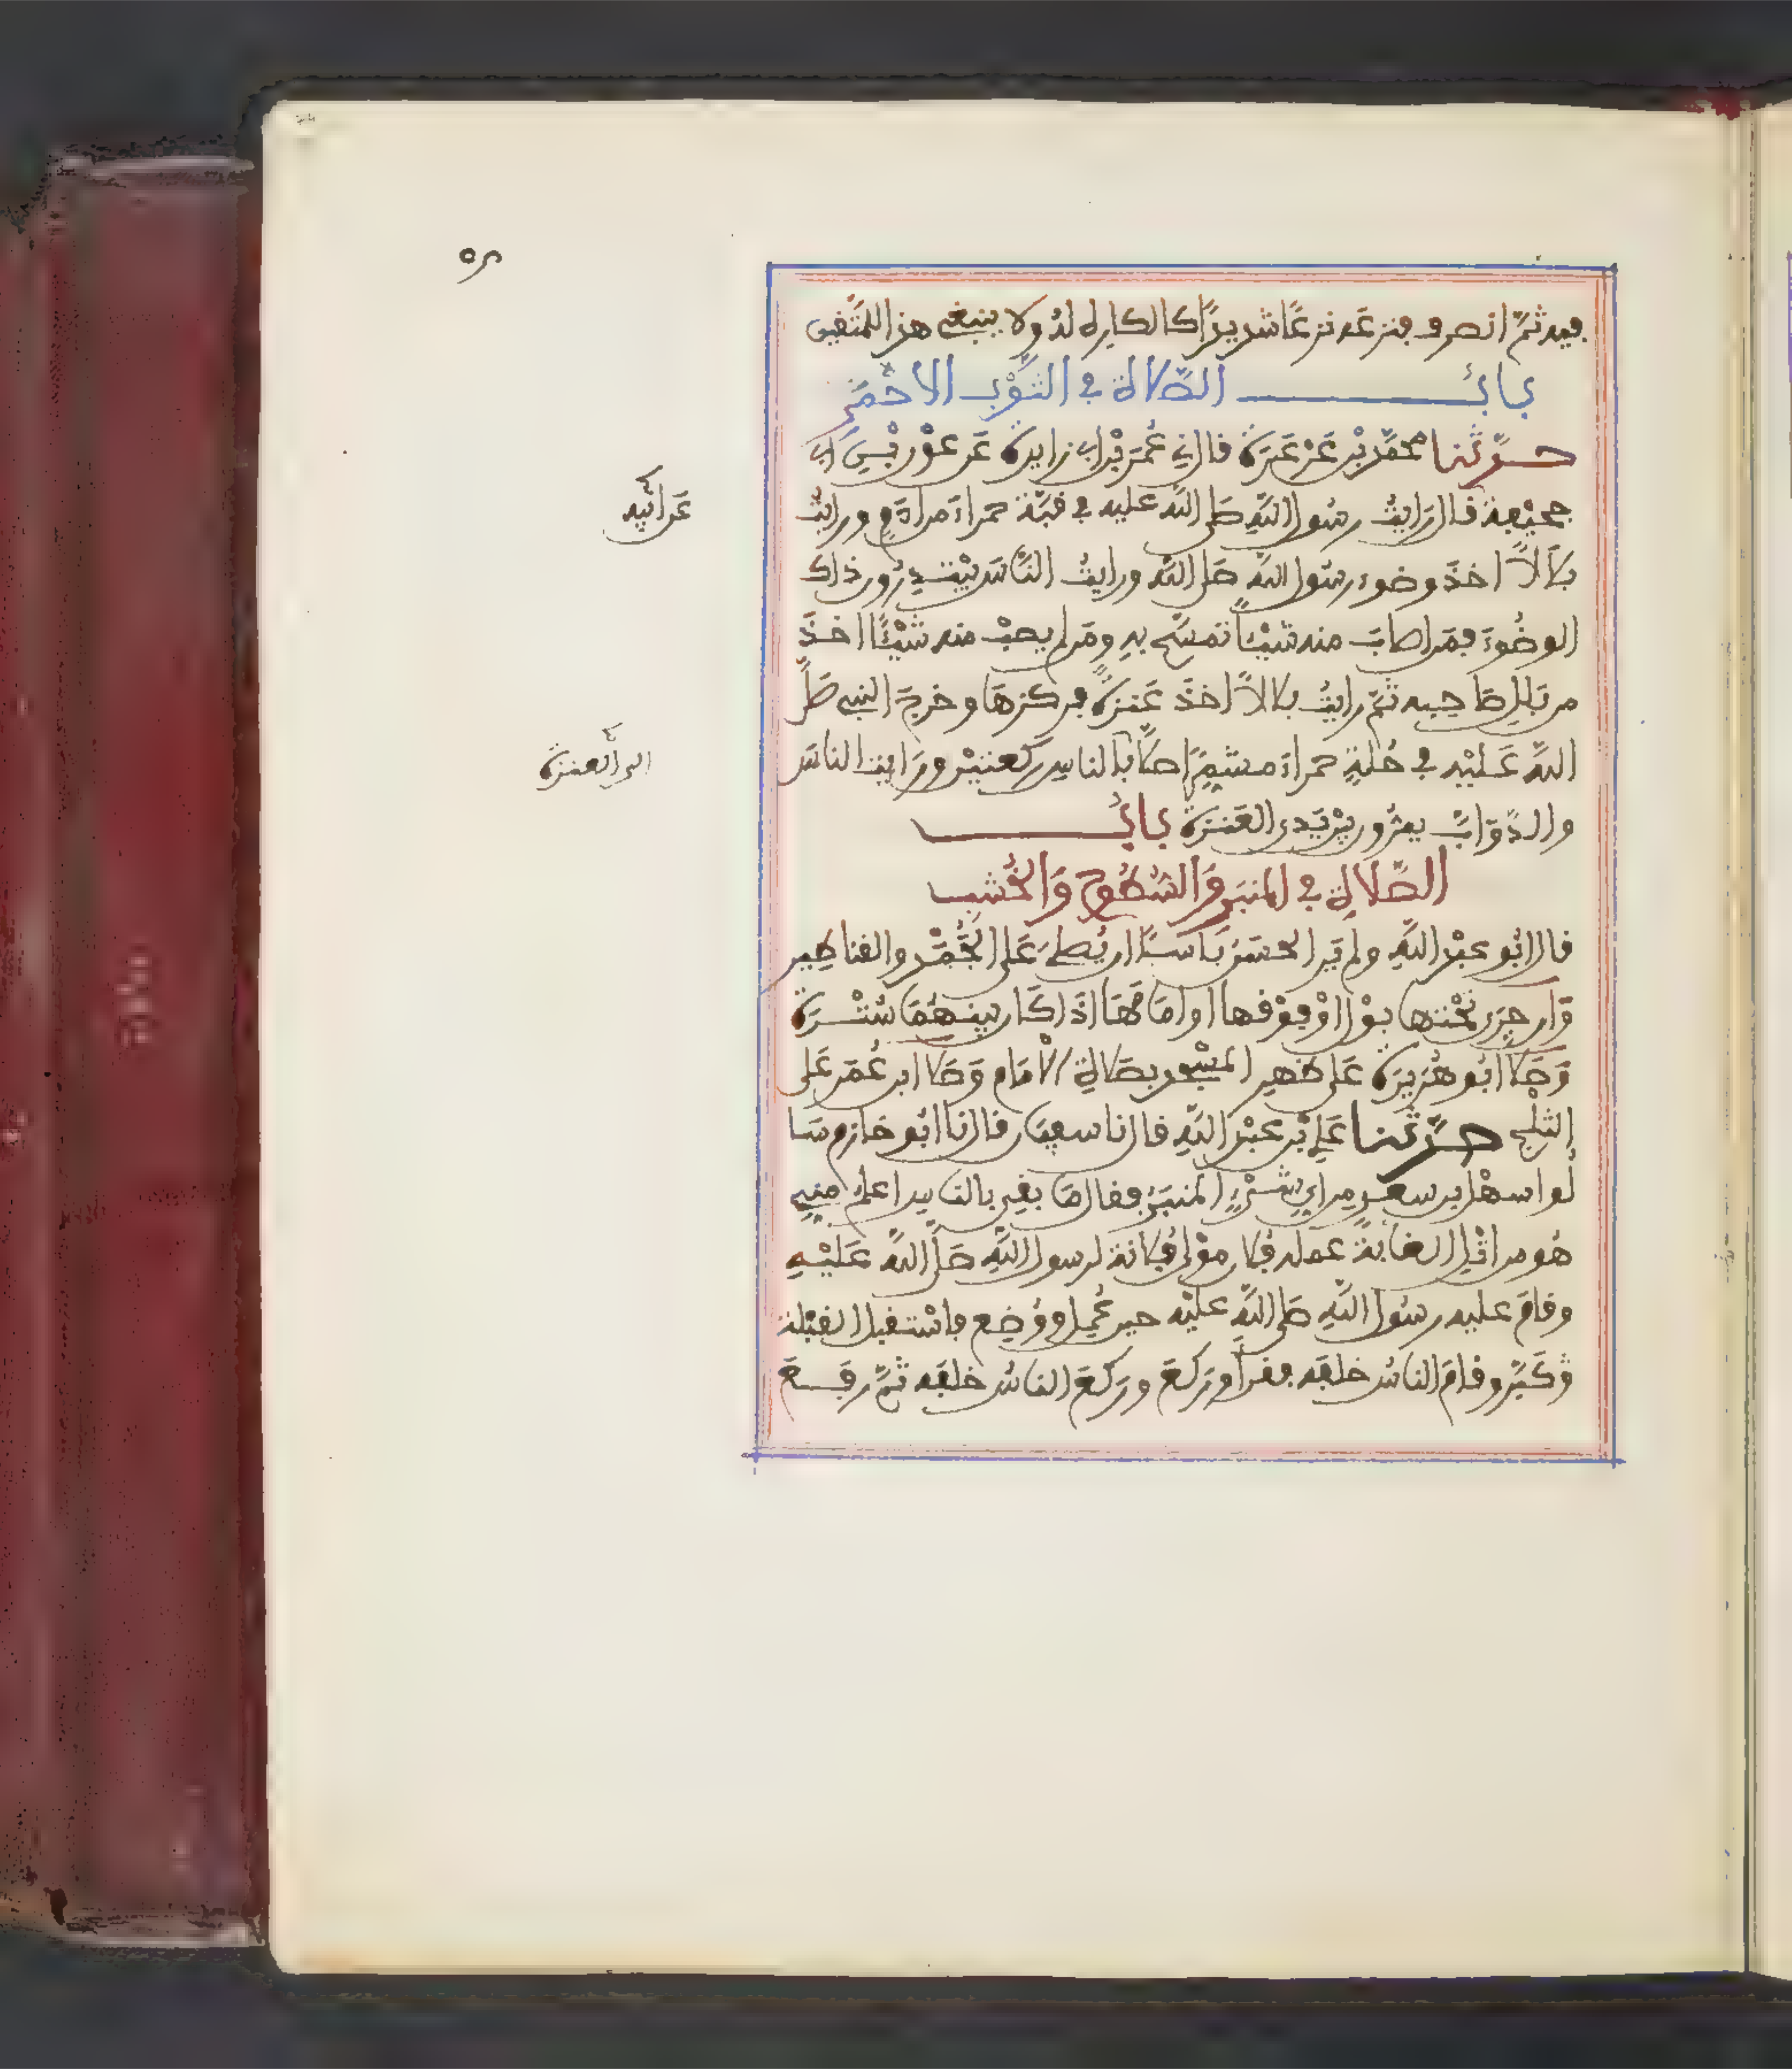 فيه ثمّ انصرف فنزعَه نزعًا شديدًا كالكاره لهُ ولا ينبغى هذا للمتّفين
بابُ الصّلاة في الثّوْب الاحْمَر
حدّثنا محمّد بْن عَرْعَرَة فال نى عُمَر بْن ابى زايدة عَن عوْن بْنِ ابى
جحيْفة فال رَايتُ رسُول اللهِ صَلى الله عليه في قبّة حمراءَ من ادَمٍ ورايْتُ
بلَالاً اخذَ وضوءَ رسُول اللهِ صَلى الله ورايتُ النّاسَ يبْتَدِرُون ذاك
الوضُوءَ فمَن اصَابَ منه شيْئاً تمسَّح بهِ ومَن لم يصبْ منه شيْئًا اخذَ
من بَلَلِ صَاحِبِه ثمّ رايْتُ بلالاً اخذَ عَنزَةً فركزهَا وخرجَ النبى صَلى
اللهُ عَليْهِ في حُلةٍ حمراءَ مشمِّرًا صَلى بالناسِ ركعتيْنِ ورَايت الناسَ
والدّوَابَّ يمرُّون بيْن يَدى العَنَزة بابُ
الصّلاة في المنبَرِ وَالسُّطُوح وَالخُشب
فال ابُو عبْد اللهِ ولم يَر الحسَنُ بَاسًا ان يُصلى عَلى الجُمْدِ والفناطير
وَان جرَى تحْتها بوْل اوْ فوْفها او امَامَهَا اذَا كَان بينهُمَا سُتْرَة
وَصَلى ابُو هُرَيرَة عَلى ظهر المسْجد بصَلاة الامَام وَصَلى ابن عُمَر عَلى
الثلْج حدّثنا عَلى بْن عبْد اللهِ فال نا سفيَان فال نا ابُو حَازم سَا
لُوا سهْل بن سعد من اىِ شىْءٍ المنبَرُ ففال مَا بفى بالناس اعلمُ منى
هُو من اثْلِ الغَابة عملهُ فلان موْلى فلانة لرسول اللهِ صَلى اللهُ عَليْهِ
وفامَ عليه رسُول اللهِ صَلى اللهُ عليْه حين عُمِل ووُضِع فاسْتفبل الفبْلة
وَكبَّر وفامَ الناسُ خلفه ففرأ وركعَ وركعَ الناسُ خلفه ثمّ رفعَ
عَن ابيه
الى العنزة